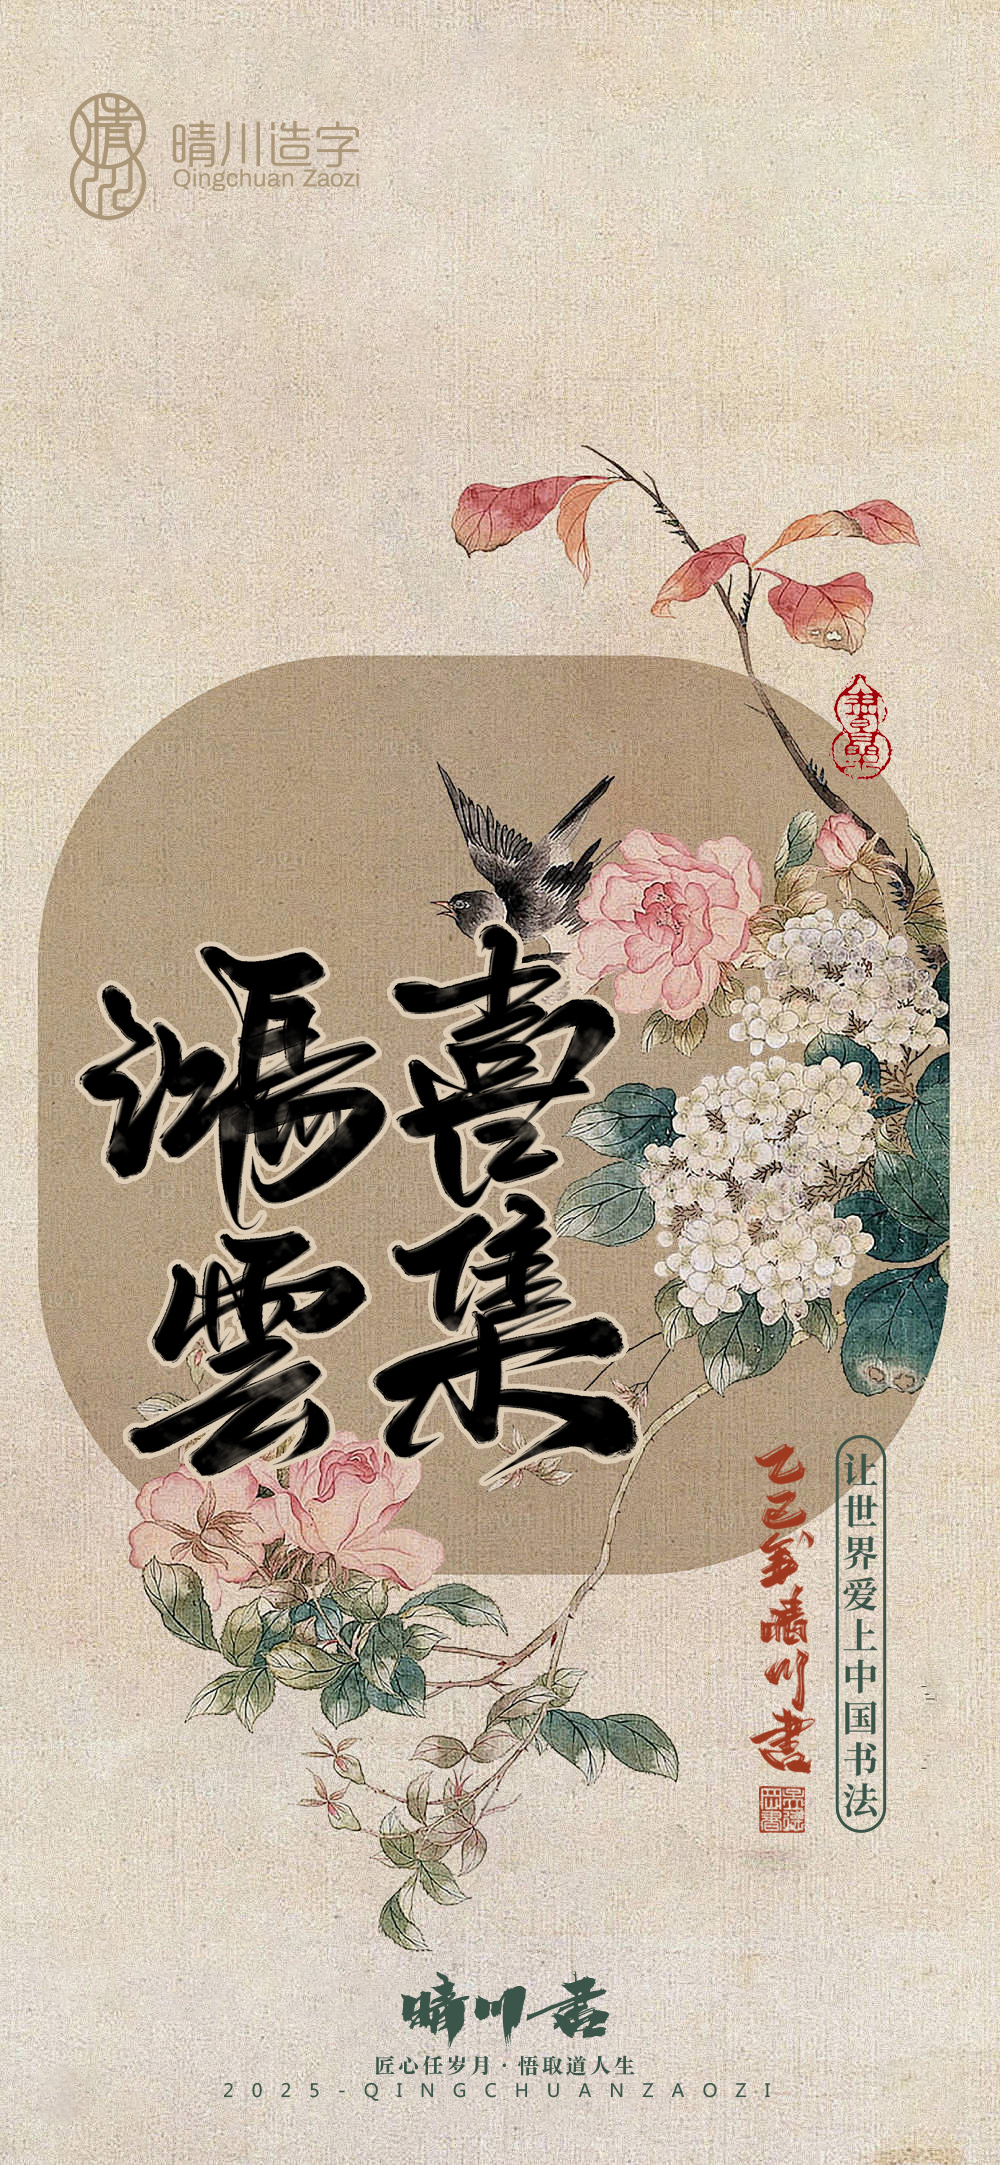 晴川造字
Qingchuan Zaozi
喜集
鴻雲
让世界爱上中国书法
乙巳年晴川书
晴川書
匠心任岁月·悟取道人生
2025-QINGCHUANZAOZI